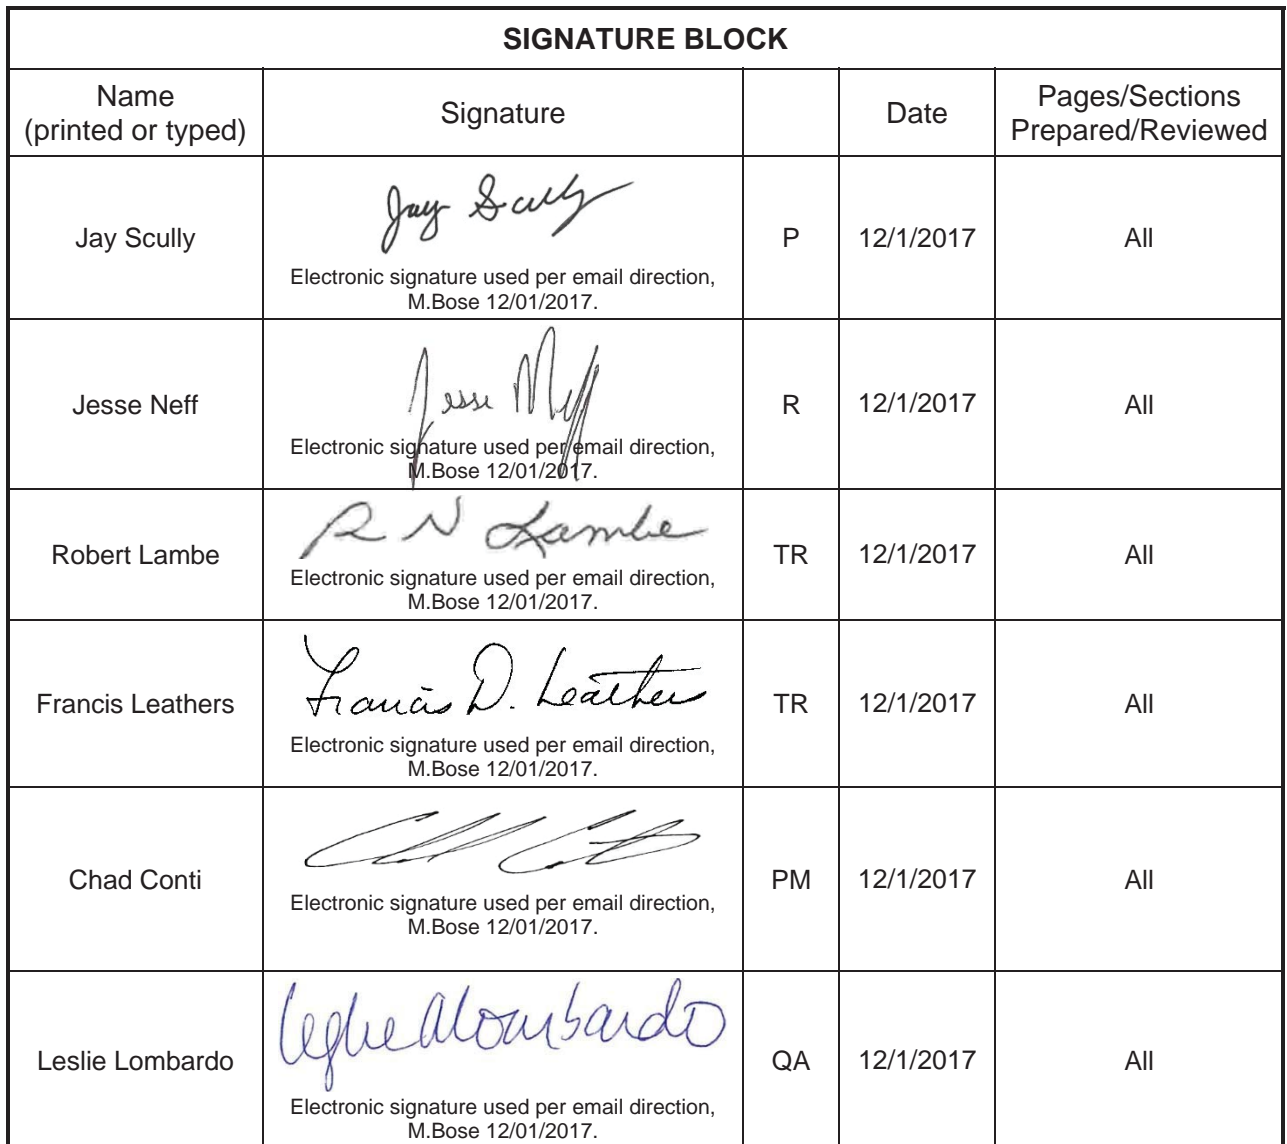 SIGNATURE BLOCK
Name
(printed or typed)
Signature
Date
Pages/Sections
Prepared/Reviewed
Jay Scully
Jay Scully
Electronic signature used per email direction,
M.Bose 12/01/2017.
P
12/1/2017
All
Jesse Neff
Jesse Neff
Electronic signature used per email direction,
M.Bose 12/01/2017.
R
12/1/2017
All
Robert Lambe
R N Lambe
Electronic signature used per email direction,
M.Bose 12/01/2017.
TR
12/1/2017
All
Francis Leathers
Francis D. Leathers
Electronic signature used per email direction,
M.Bose 12/01/2017.
TR
12/1/2017
All
Chad Conti
Electronic signature used per email direction,
M.Bose 12/01/2017.
PM
12/1/2017
All
Leslie Lombardo
Leslie A Lombardo
Electronic signature used per email direction,
M.Bose 12/01/2017.
QA
12/1/2017
All